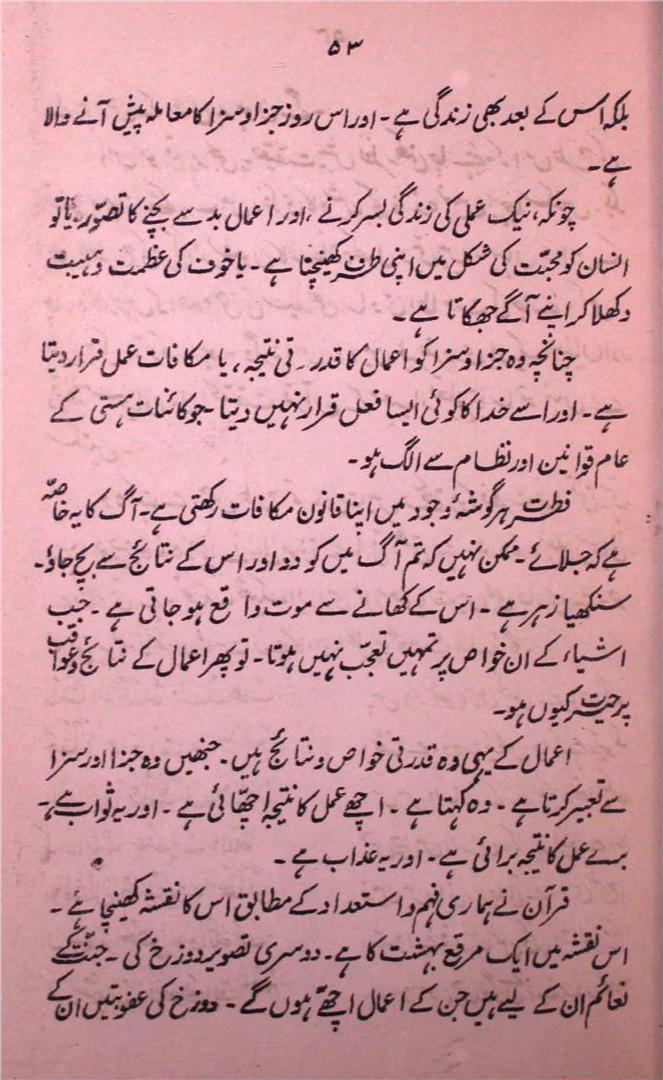 ۵۳
بلکہ اس کے بعد بھی زندگی ہے ۔ اور اس روز جزا و سزا کا معاملہ پیش آنے والا
ہے ۔
چونکہ، نیک عملی کی زندگی بسر کرنے ، اور اعمال بد سے بچنے کا تصوّر، یا تو
انسان کو محبّت کی شکل میں اپنی طرف کھینچتا ہے ۔ یا خوف کی عظمت و ہیبت
دکھلا کر اپنے آگے جھکاتا ہے ۔
چنانچہ وہ جزا و سزا کو اعمال کا قدرتی نتیجہ ، یا مکافات عمل قرار دیتا
ہے ۔ اور اسے خدا کا کوئی ایسا فعل قرار نہیں دیتا ۔ جو کائنات ہستی کے
عام قوانین اور نظام سے الگ ہو ۔
فطرت ہر گوشۂ وجود میں اپنا قانون مکافات رکھتی ہے ۔ آگ کا یہ خاصّہ
ہے کہ جلائے ۔ ممکن نہیں کہ تم آگ میں کودو اور اس کے نتائج سے بچ جاؤ ۔
سنکھیا زہر ہے ۔ اس کے کھانے سے موت واقع ہو جاتی ہے ۔ جب
اشیاء کے ان خواص پر تمہیں تعجّب نہیں ہوتا ۔ تو پھر اعمال کے نتائج و عواقب
پر حیرت کیوں ہو ۔
اعمال کے یہی وہ قدرتی خواص و نتائج ہیں ۔ جنھیں وہ جزا اور سزا
سے تعبیر کرتا ہے ۔ وہ کہتا ہے ۔ اچھے عمل کا نتیجہ اچھّائی ہے ۔ اور یہ ثواب ہے ،
برے عمل کا نتیجہ برائی ہے ۔ اور یہ عذاب ہے ۔
قرآن نے ہماری فہم و استعداد کے مطابق اس کا نقشہ کھینچا ہے ۔
اس نقشہ میں ایک مرقع بہشت کا ہے ۔ دوسری تصویر دوزخ کی ۔ جنّت کے
نعائم ان کے لیے ہیں جن کے اعمال اچھّے ہوں گے ۔ دوزخ کی عقوبتیں ان کے